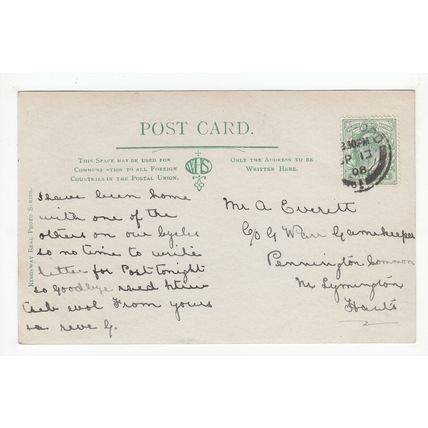 POST CARD.
THIS SPACE MAY BE USED FOR
COMMUNICATION TO ALL FOREIGN
COUNTRIES IN THE POSTAL UNION.
WHS
ONLY THE ADDRESS TO BE
WRITTEN HERE.
KINGSWAY REAL PHOTO SERIES.
I have been home
with one of the
others on our bycles
so no time to write
letter for Post tonight
so goodbye raed
tseb evol From yours
sa reve G.
Mr A Everett
C/o G Warr Gamekeeper
Pennington Common
Nr Lymington
Hants
3.30 PM
SP 13
08